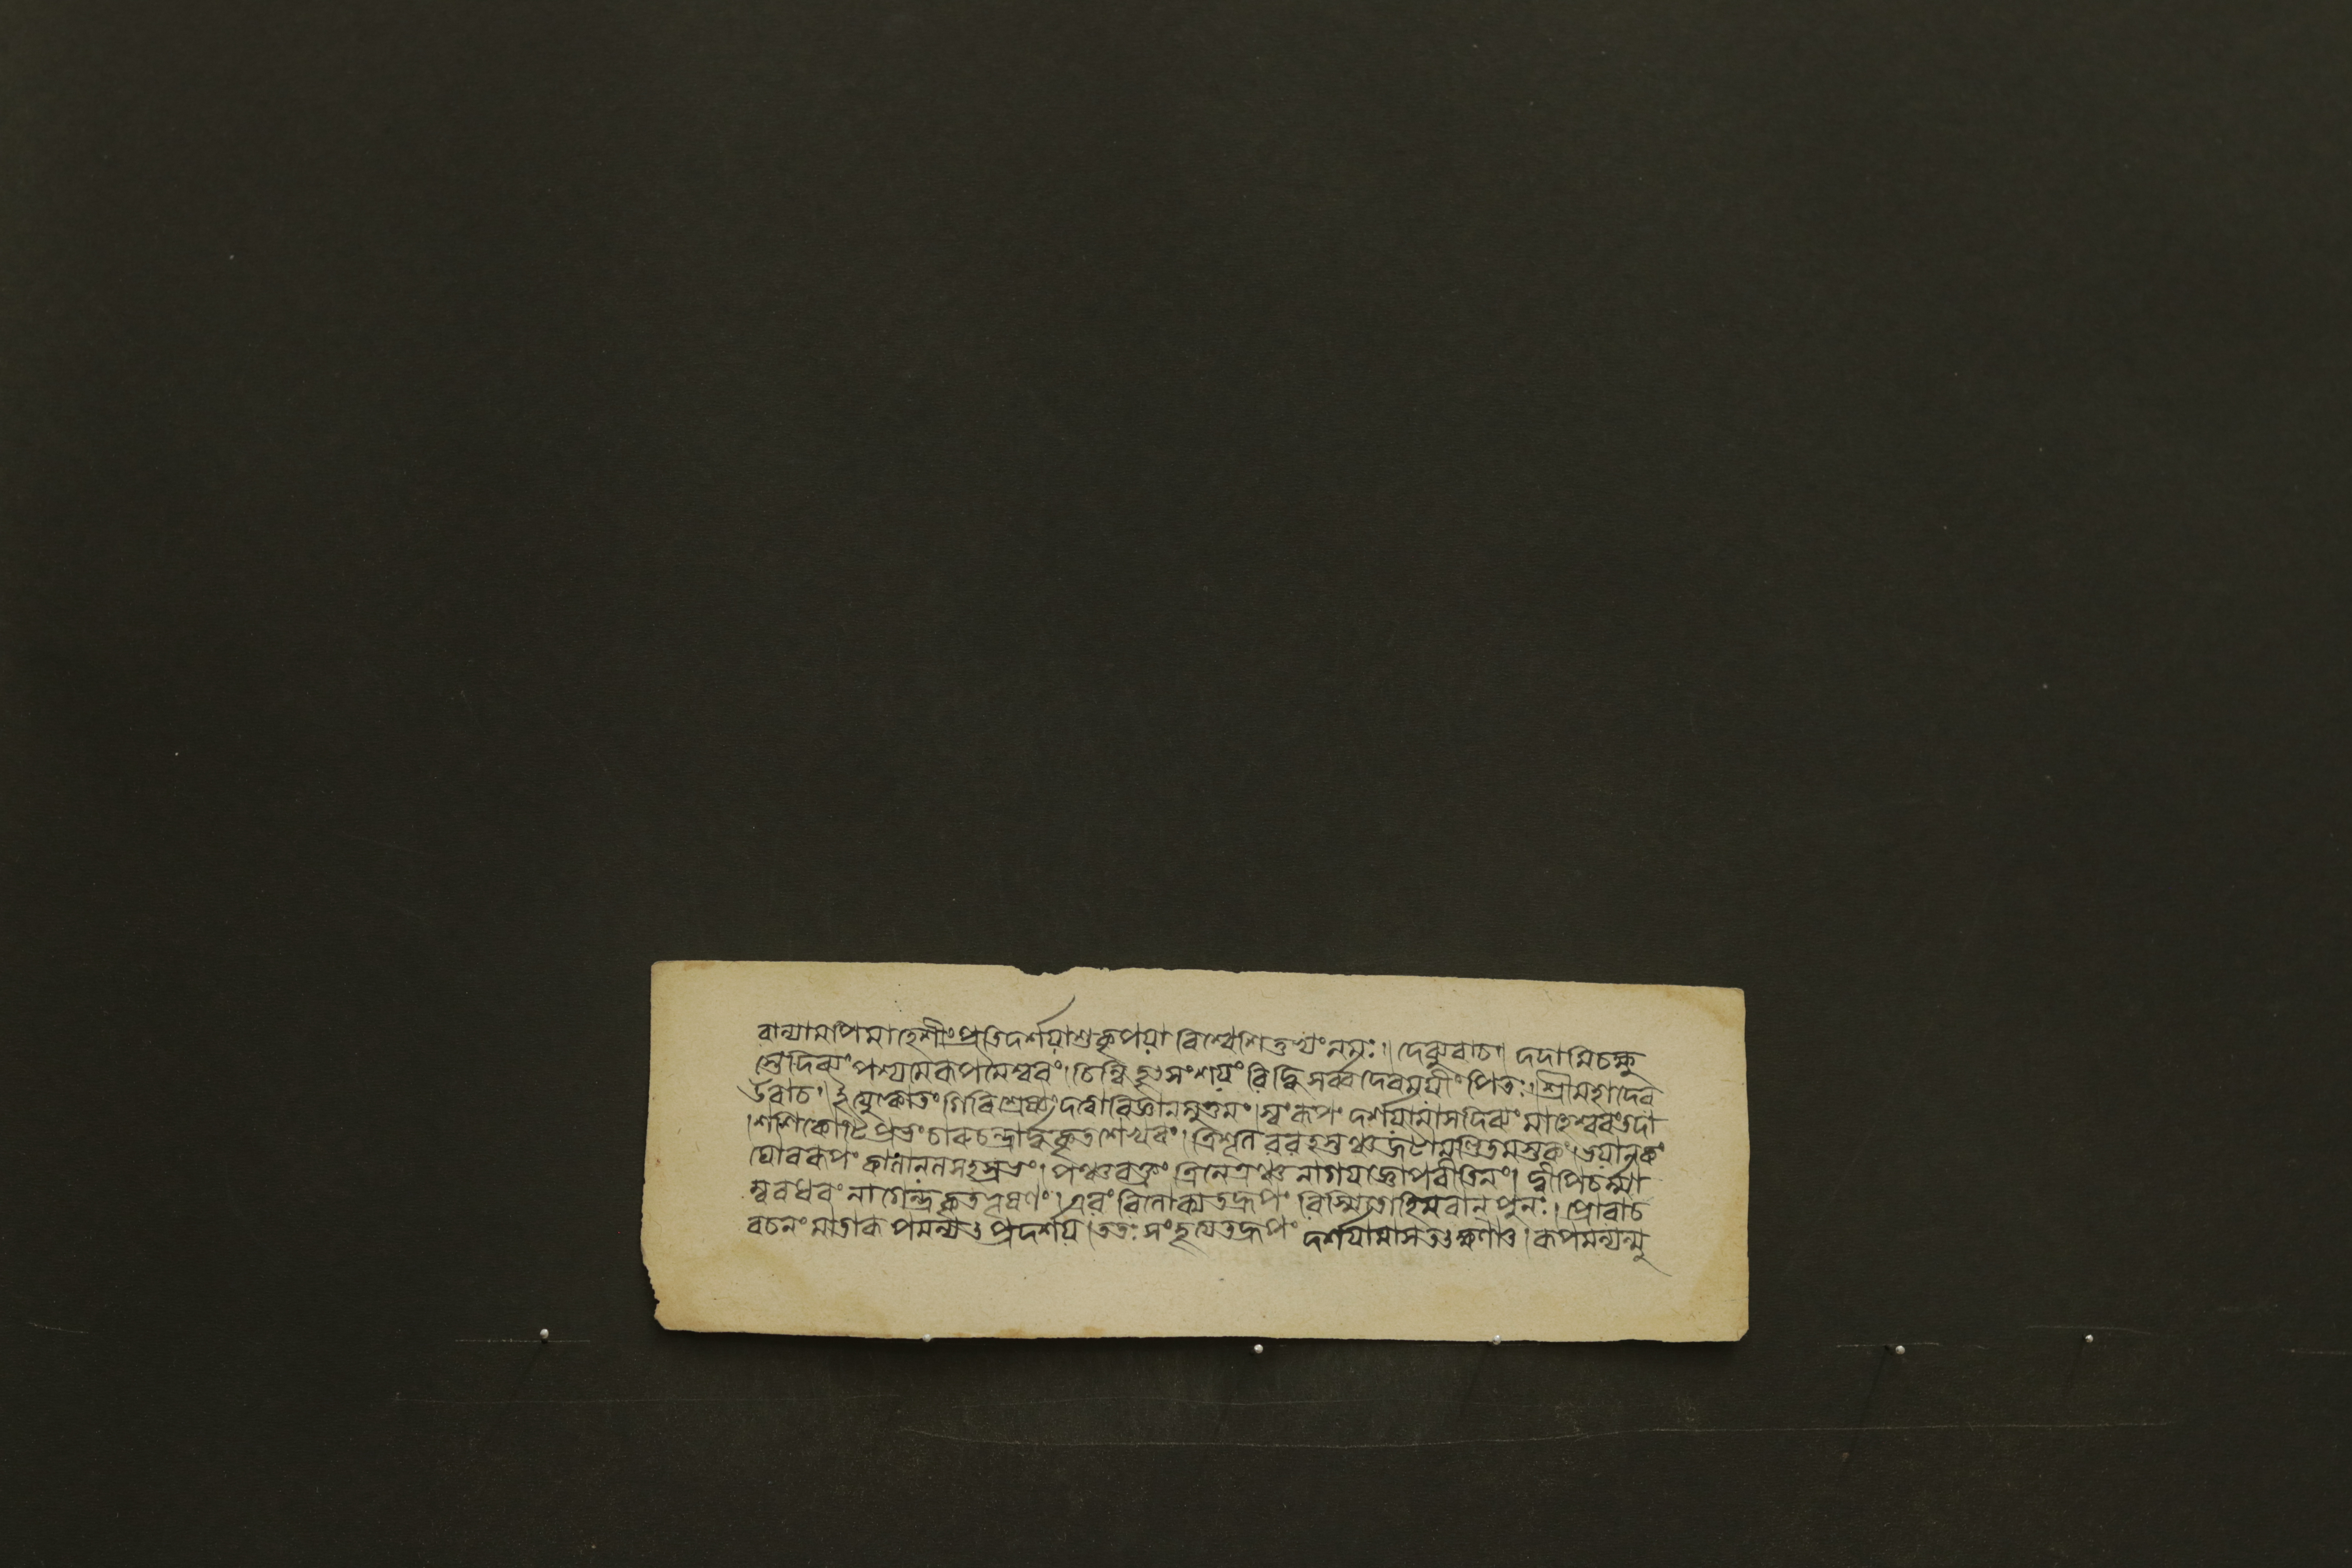 বান্যামাপিমাহেশীংপ্রতিদর্শয়াশুকৃপয়া বিশ্বেশিতুভ্যংনমঃ।। দেব্যুবাচ।। দদামিচক্ষু
স্তেদিব্যং পশ্যমেৰূপমৈশ্বৰং। চিন্ধি হৃৎসংশয়ং বিদ্ধি সর্ব্বদেবময়ীং পিতঃ। শ্রীমহাদেব
উবাচ। ইত্যুক্ত্বাতং গিৰিশ্রেষ্ঠং দত্বাবিজ্ঞানমুত্তমং। স্বংৰূপং দর্শয়ামাসদিব্যং মাহেশ্বৰংতদা
।শশিকোটিপ্রভং চাৰুচন্দ্রার্দ্ধকৃতশেখৰং। ত্রিশূলবরহস্তঞ্চজটামণ্ডিতমস্তকং। ভয়ানকং
ঘোৰৰূপং কালানলসহস্রভং। পঞ্চবক্ত্রং ত্রিনেত্রঞ্চ নাগযজ্ঞোপবীতিনং। দ্বীপিচর্ম্মা
ম্বৰধৰং নাগেন্দ্রকৃতভূষণং। এবং বিলোক্যতদ্রূপং বিস্মিতোহিমবান্ পুনঃ। প্রোবাচ
বচনং মাতাৰূপমন্যৎপ্রদর্শয়। ততঃ সংহৃত্যতদ্রূপং দর্শয়ামাসতৎক্ষণাৎ। ৰূপমন্যন্মু